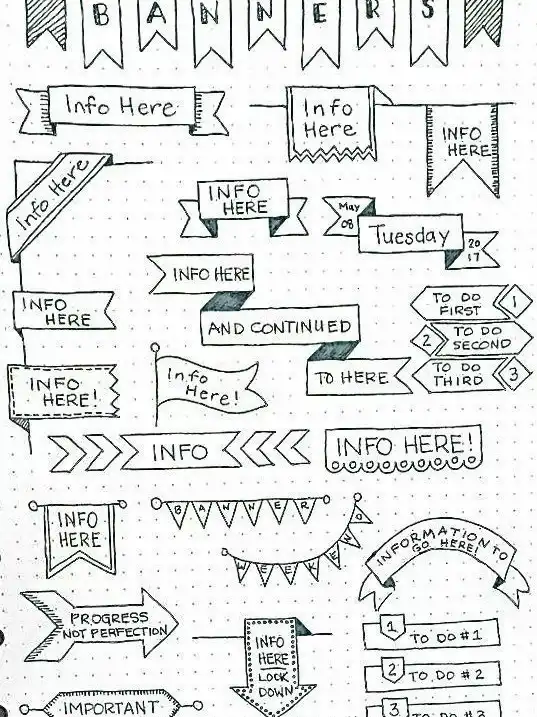 BANNERS
Info Here
Info
Here
INFO
HERE
Info Here
INFO
HERE
May
08
Tuesday
20
17
INFO HERE
AND CONTINUED
TO HERE
INFO
HERE
TO DO
FIRST
1
2
TO DO
SECOND
TO DO
THIRD
3
INFO
HERE!
Info
Here!
INFO
INFO HERE!
INFO
HERE
BANNER
WEEKEND
INFORMATION TO
GO HERE!
PROGRESS
NOT PERFECTION
INFO
HERE
LOCK
DOWN
1
TO DO #1
2
TO DO #2
3
TO DO #3
IMPORTANT